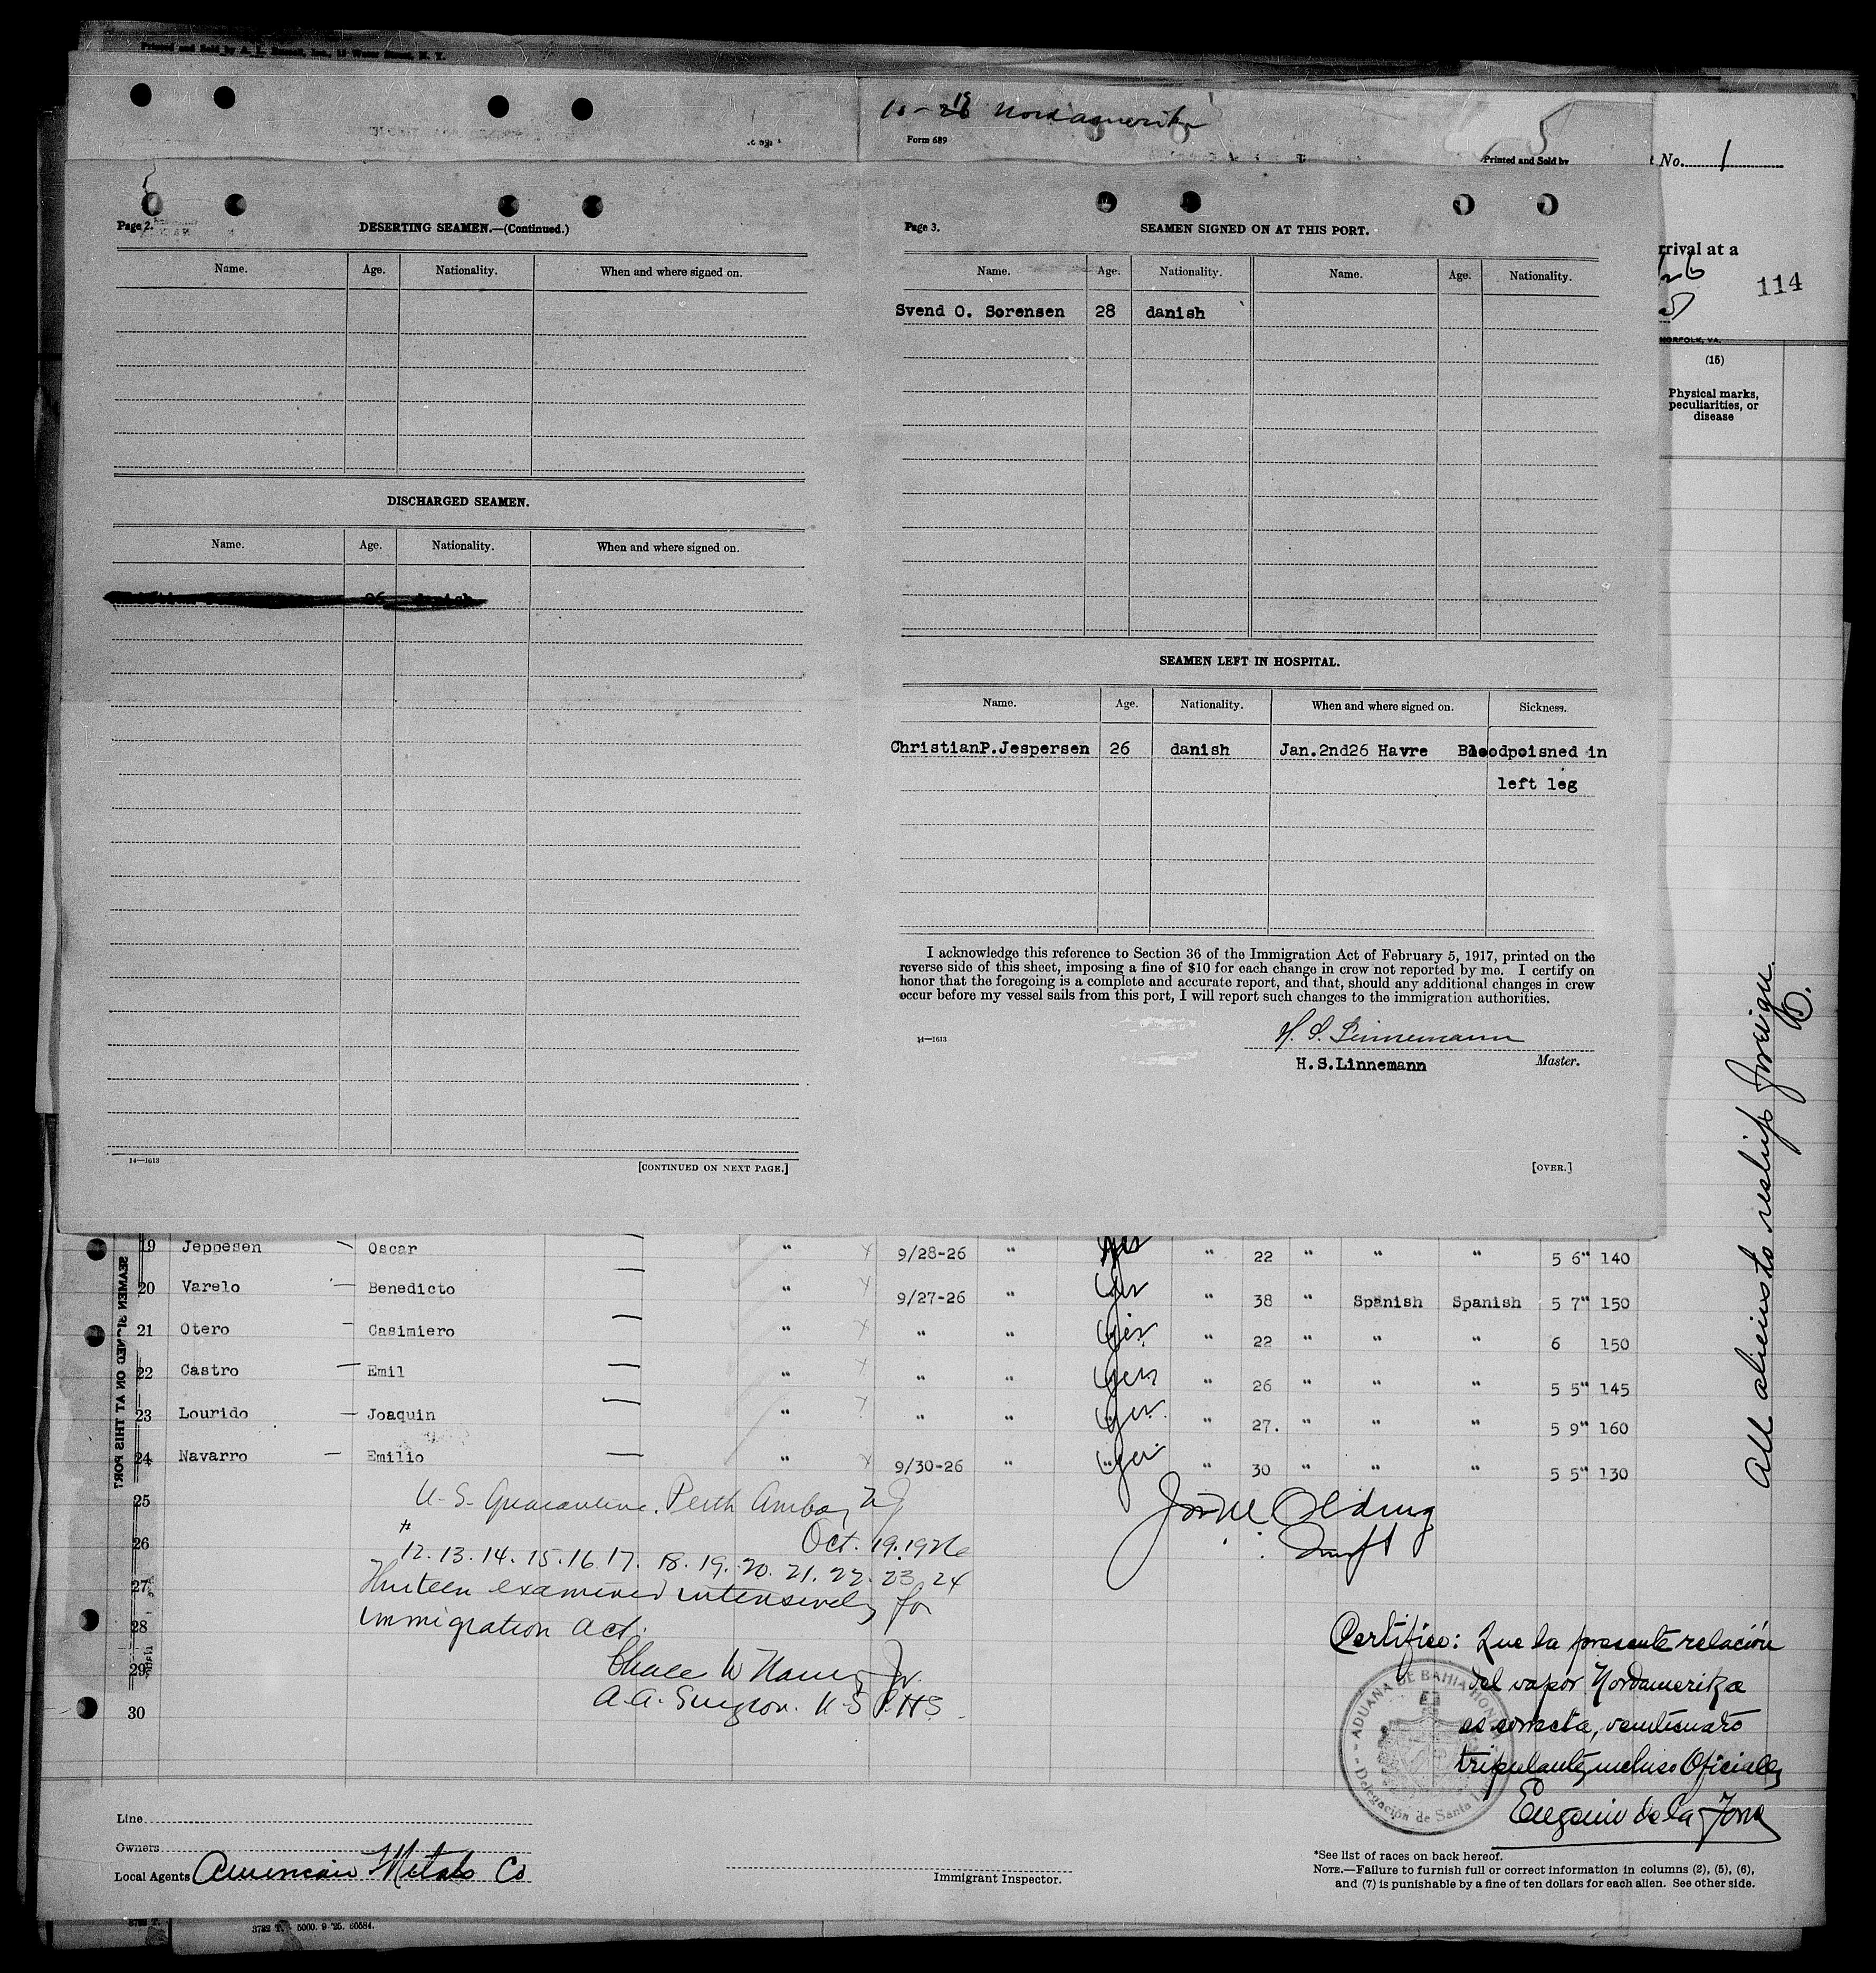 Printed and Sold by
15 Water Street, N. Y.
10-19 Nordamerika
Form 689
5
Printed and Sold by
No. 1
rrival at a
114
NORFOLK, VA.
(15)
Physical marks,
peculiarities, or
disease
Page 2.
DESERTING SEAMEN.—(Continued.)
Name. Age. Nationality. When and where signed on.
DISCHARGED SEAMEN.
Name. Age. Nationality. When and where signed on.
26 danish
14—1613
[CONTINUED ON NEXT PAGE.]
Page 3.
SEAMEN SIGNED ON AT THIS PORT.
Name. Age. Nationality. Name. Age. Nationality.
Svend O. Sørensen 28 danish
SEAMEN LEFT IN HOSPITAL.
Name. Age. Nationality. When and where signed on. Sickness.
ChristianP.Jespersen 26 danish Jan.2nd26 Havre Bloodpoisned in
left leg
I acknowledge this reference to Section 36 of the Immigration Act of February 5, 1917, printed on the
reverse side of this sheet, imposing a fine of $10 for each change in crew not reported by me. I certify on
honor that the foregoing is a complete and accurate report, and that, should any additional changes in crew
occur before my vessel sails from this port, I will report such changes to the immigration authorities.
H. S. Linnemann
14—1613
H.S.Linnemann Master.
[OVER.]
All aliens to reship foreign.
SEAMEN SIGNED ON AT THIS PORT
19 Jeppesen — Oscar — " 9/28-26 " yes " 22 " " " 5 6" 140
20 Varelo — Benedicto — " 9/27-26 " yes " 38 " Spanish Spanish 5 7" 150
21 Otero — Casimiero — " " " yes " 22 " " " 6 150
22 Castro — Emil — " " " yes " 26 " " " 5 5" 145
23 Lourido — Joaquin — " " " yes " 27. " " " 5 9" 160
24 Navarro — Emilio — " 9/30-26 " yes " 30 " " " 5 5" 130
25
26
27
28
29
30
U.S. Quarantine, Perth Amboy NJ
Oct. 19. 1926
# 12. 13. 14. 15. 16. 17. 18. 19. 20. 21. 22. 23. 24
Thirteen examined intensively for
immigration act.
A.A. Surgeon. U S P.H.S.
Certifico: Que la presente relación
del vapor Nordamerika
es correcta, veinticuatro
tripulantes incluso Oficiales
Eugenio de la
ADUANA DE BAHIA HONDA
Delegación de Santa
Line
Owners
Local Agents American Metals Co
Immigrant Inspector.
*See list of races on back hereof.
NOTE.—Failure to furnish full or correct information in columns (2), (5), (6),
and (7) is punishable by a fine of ten dollars for each alien. See other side.
3782 T.
3782 T. 5000. 9-'25. 60584.